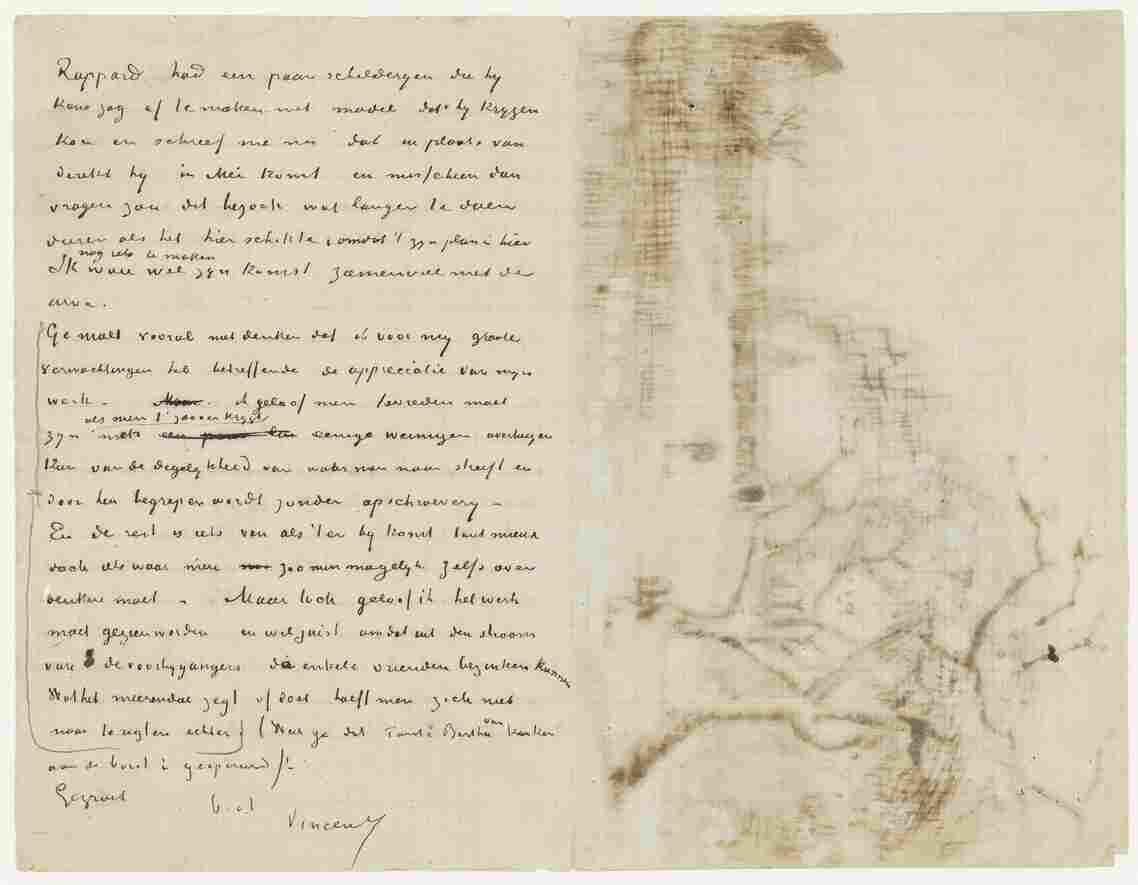 Rappard had een paar schilderijen die hij
klaar zag af te maken met model dat hij krijgen
kon en schreef me nu dat in plaats van
direkt hij in Mei komt en misschien dan
vragen zou dit bezoek wat langer te doen
duren als het hier schikte, omdat 't zijn plan is hier
nog iets te maken
Ik wou wel zijn komst zamenviel met de
uwe.
Ge moet vooral niet denken dat ik voor mij groote
verwachtingen heb betreffende de appreciatie van mijn
werk – Maar ik geloof men tevreden moet
als men 't zoover krijgt
zijn met een paar lui eenige weinigen overtuigen
kan van de degelijkheid van waar men naar streeft en
door hen begrepen wordt zonder opschroeverij –
En de rest is iets van als 't er bij komt tant mieux
doch iets waar men zoo min mogelijk zelfs over
denken moet – Maar toch geloof ik het werk
moet gezien worden en wel juist omdat uit den stroom
van de voorbijgangers de enkele vrienden bezinken kunnen
Wat het meerendeel zegt of doet hoeft men zich niet
naar te rigten echter. (Weet ge dat Tante Bertha van
aan de borst is geopereerd)!
Gegroet
b. à t.
Vincent